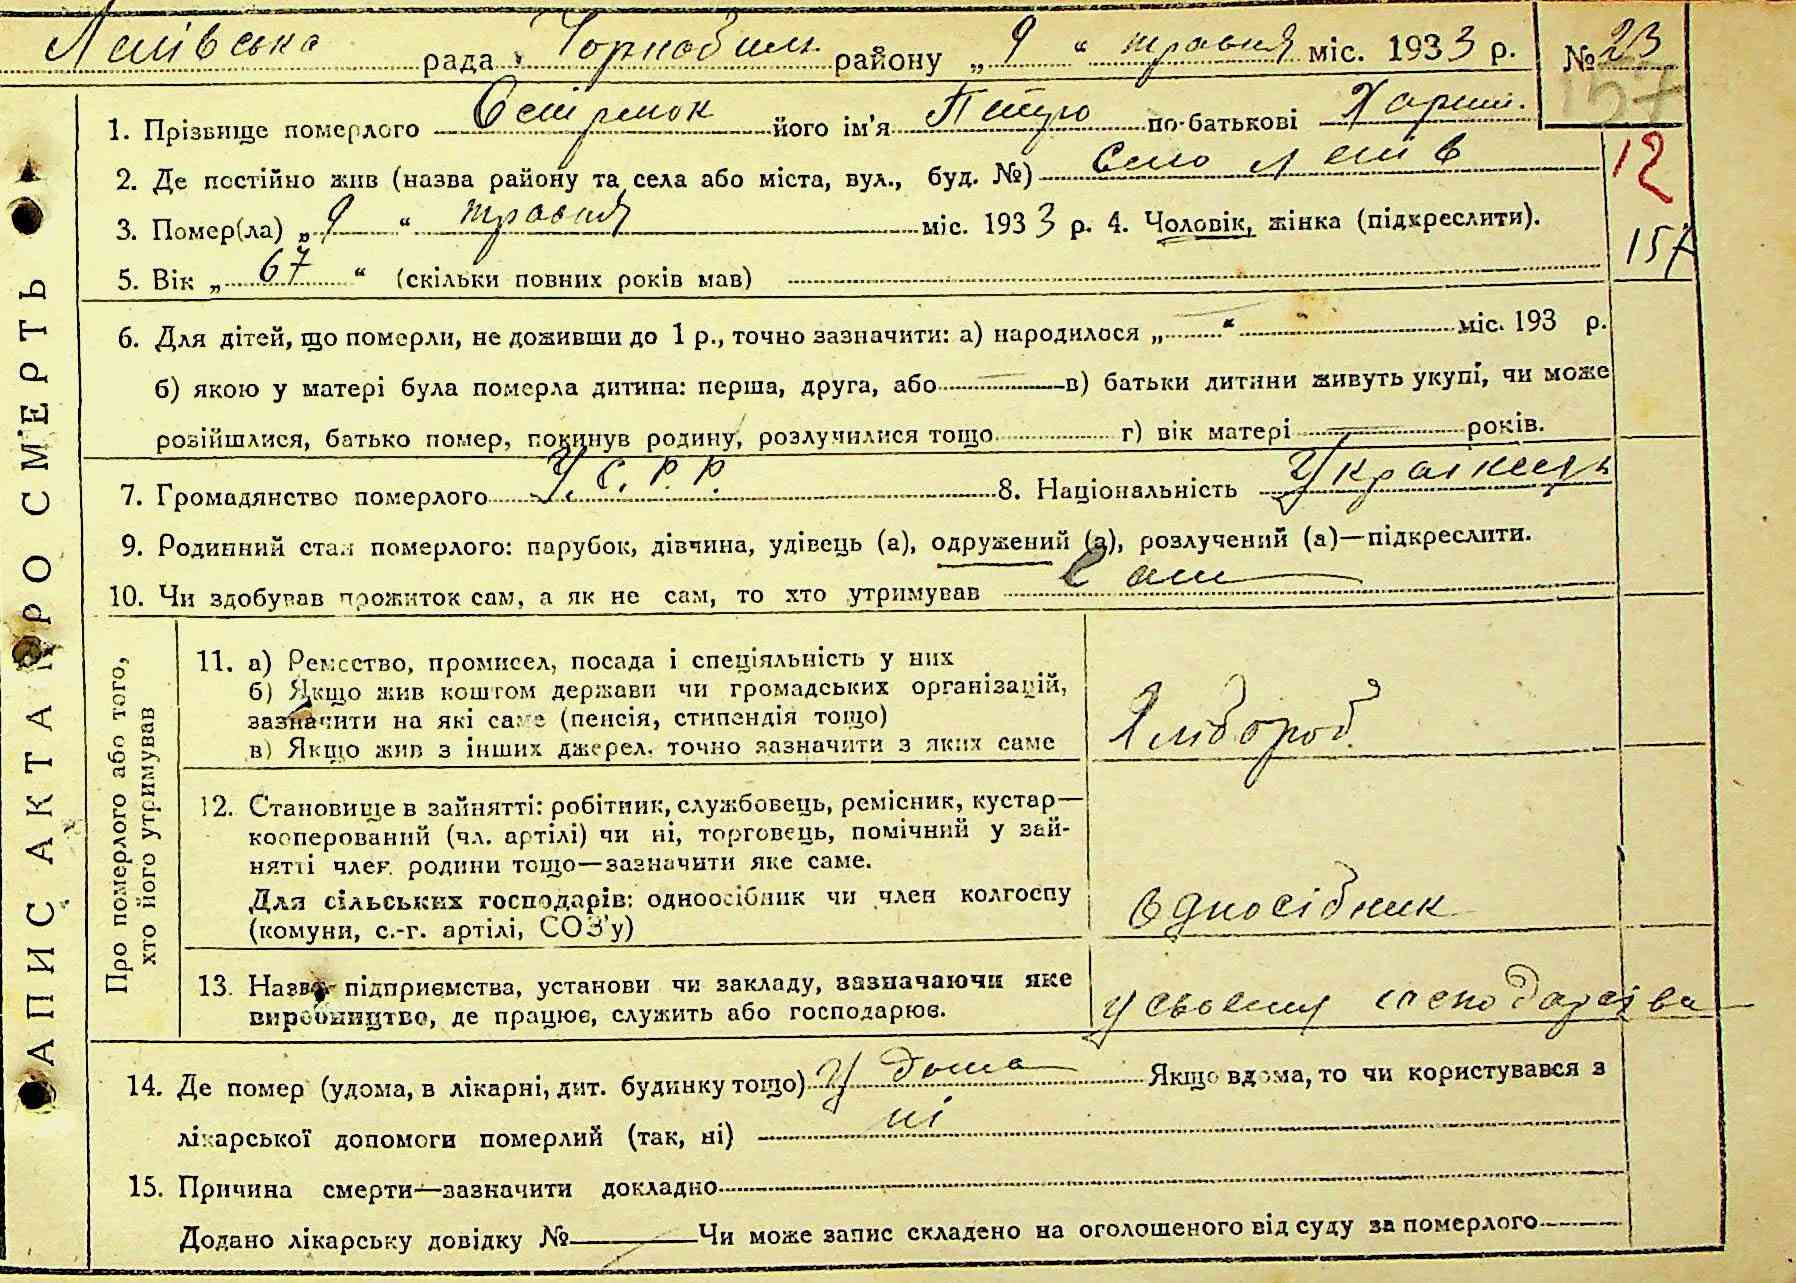 Лелівська рада Чорнобил. району „9“ травня міс. 1933 р. № 23
157
1. Прізвище померлого його ім'я Петро по-батькові Харит.
2. Де постійно жив (назва району та села або міста, вул., буд. №) Село Лелів
12
3. Помер(ла) „9“ травня міс. 1933 р. 4. Чоловік, жінка (підкреслити).
157
5. Вік „67“ (скільки повних років мав)
6. Для дітей, що померли, не доживши до 1 р., точно зазначити: а) народилося „ “ міс. 193 р.
б) якою у матері була померла дитина: перша, друга, або в) батьки дитини живуть укупі, чи може
розійшлися, батько помер, покинув родину, розлучилися тощо г) вік матері років.
7. Громадянство померлого У.С.Р.Р. 8. Національність Українець
9. Родинний стан померлого: парубок, дівчина, удівець (а), одружений (а), розлучений (а)—підкреслити.
10. Чи здобував прожиток сам, а як не сам, то хто утримував Сам
ЗАПИС АКТА ПРО СМЕРТЬ
Про померлого або того,
хто його утримував
11. а) Ремество, промисел, посада і спеціяльність у них
б) Якщо жив коштом держави чи громадських організацій,
зазначити на які саме (пенсія, стипендія тощо)
в) Якщо жив з інших джерел, точно зазначити з яких саме
Хлібороб
12. Становище в зайнятті: робітник, службовець, ремісник, кустар—
кооперований (чл. артілі) чи ні, торговець, помічний у зай-
нятті член родини тощо—зазначити яке саме.
Для сільських господарів: одноосібник чи член колгоспу
(комуни, с.-г. артілі, СОЗ'у)
Односібник
13. Назва підприємства, установи чи закладу, зазначаючи яке
виробництво, де працює, служить або господарює.
у своєму господарстві
14. Де помер (удома, в лікарні, дит. будинку тощо) У дома Якщо вдома, то чи користувався з
лікарської допомоги померлий (так, ні) ні
15. Причина смерти—зазначити докладно
Додано лікарську довідку № Чи може запис складено на оголошеного від суду за померлого